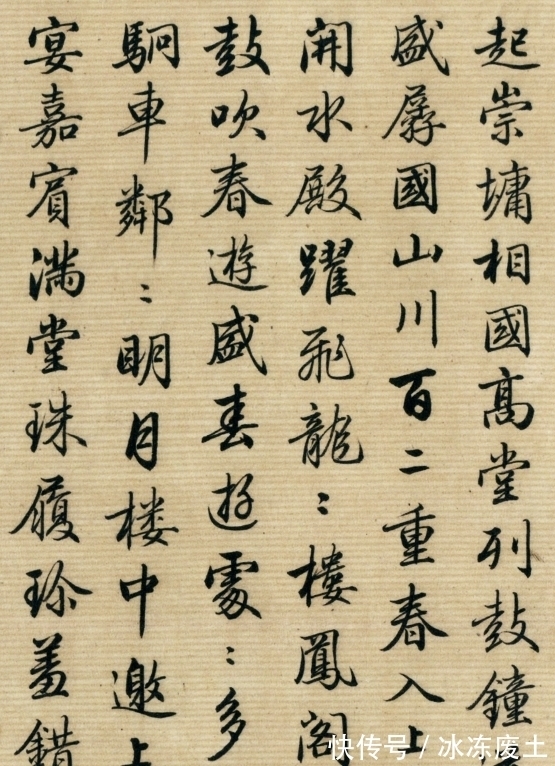 起崇墉相國高堂列鼓鐘
盛孱國山川百二重春入上
開水殿躍飛龍〻樓鳳閣
鼓吹春遊盛春遊處〻多
駉車鄰〻明月楼中邀上
宴嘉賓滿堂珠履珍羞錯
快传号 / 冰冻废土